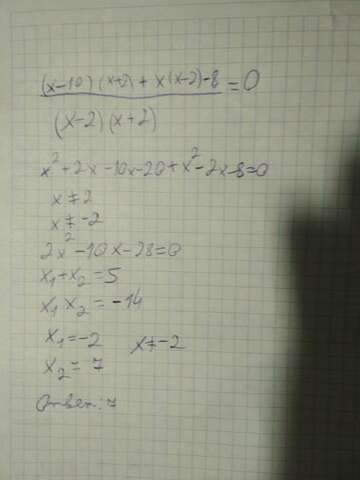 (x-10)(x+2)+x(x-2)-8 =0
(x-2)(x+2)
x²+2x-10x-20+x²-2x-8=0
x≠2
x≠-2
2x²-10x-28=0
x₁+x₂=5
x₁x₂=-14
x₁=-2 x≠-2
x₂=7
Ответ:7